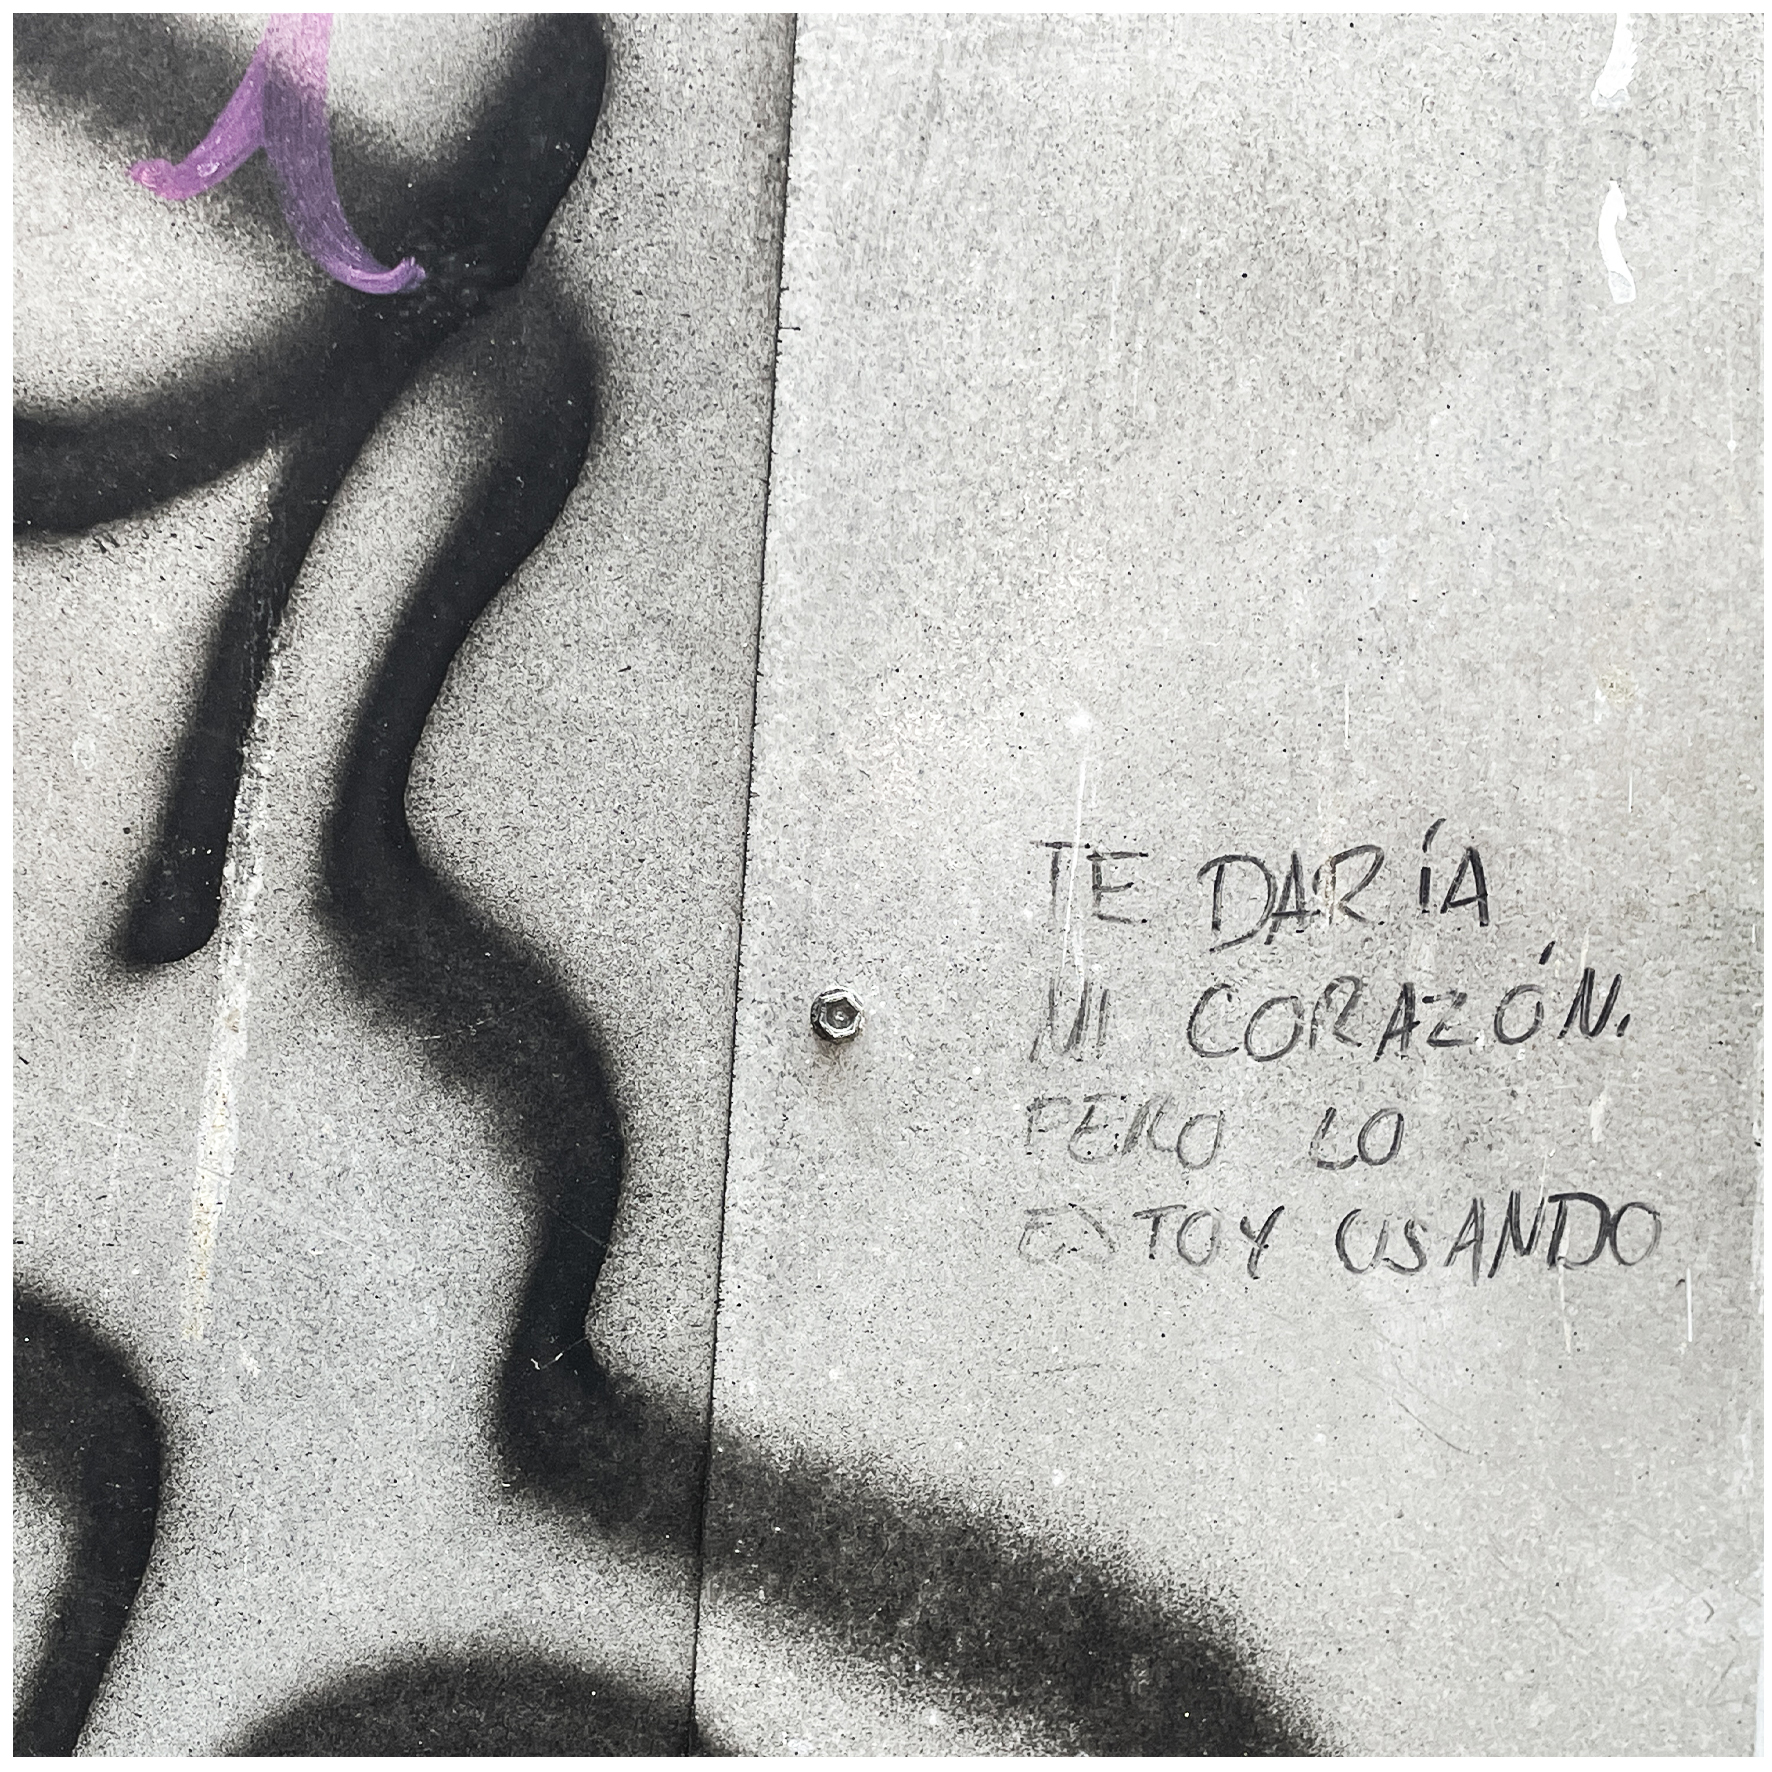 TE DARÍA
MI CORAZÓN.
PERO LO
ESTOY USANDO